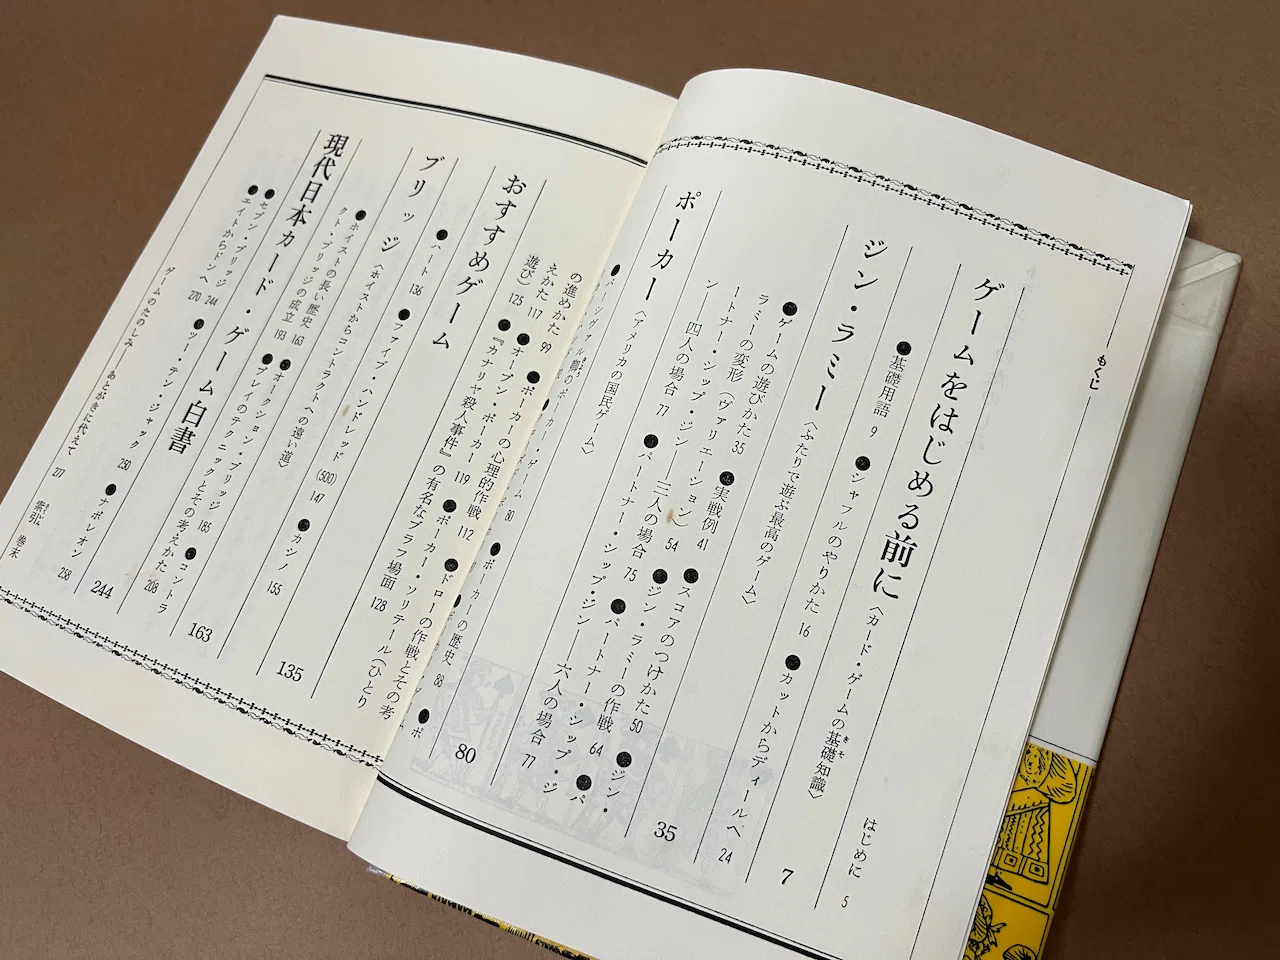 もくじ
はじめに 5
ゲームをはじめる前に 〈カード・ゲームの基礎知識〉 7
●基礎用語 9 ●シャフルのやりかた 16 ●カットからディールへ 24
ジン・ラミー 〈ふたりで遊ぶ最高のゲーム〉 35
●ゲームの遊びかた 35 ●実戦例 41 ●スコアのつけかた 50 ●ジン・
ラミーの変形(ヴァリエーション) 54 ●ジン・ラミーの作戦 64 ●パ
ートナー・シップ・ジン――三人の場合 75 ●パートナー・シップ・ジ
ン――四人の場合 77 ●パートナー・シップ・ジン――六人の場合 77
ポーカー 〈アメリカの国民ゲーム〉 80
●パーシヴァル卿のポーカー・ゲーム 80 ●ポーカーの歴史 88 ●ポ
の進めかた 99 ●ポーカーの心理的作戦 112 ●ドローの作戦とその考
えかた 117 ●オープン・ポーカー 119 ●ポーカー・ソリテール(ひとり
遊び) 125 ●『カナリヤ殺人事件』の有名なブラフ場面 128
おすすめゲーム 135
●ハート 136 ●ファイブ・ハンドレッド(500) 147 ●カシノ 155
ブリッジ 〈ホイストからコントラクトへの遠い道〉 163
●ホイストの長い歴史 163 ●オークション・ブリッジ 185 ●コントラ
クト・ブリッジの成立 193 ●プレイのテクニックとその考えかた 208
現代日本カード・ゲーム白書 244
●セブン・ブリッジ 244 ●ツー・テン・ジャック 250 ●ナポレオン 258
●エイトからドンへ 270
ゲームのたのしみ――あとがきに代えて 277
索引 巻末